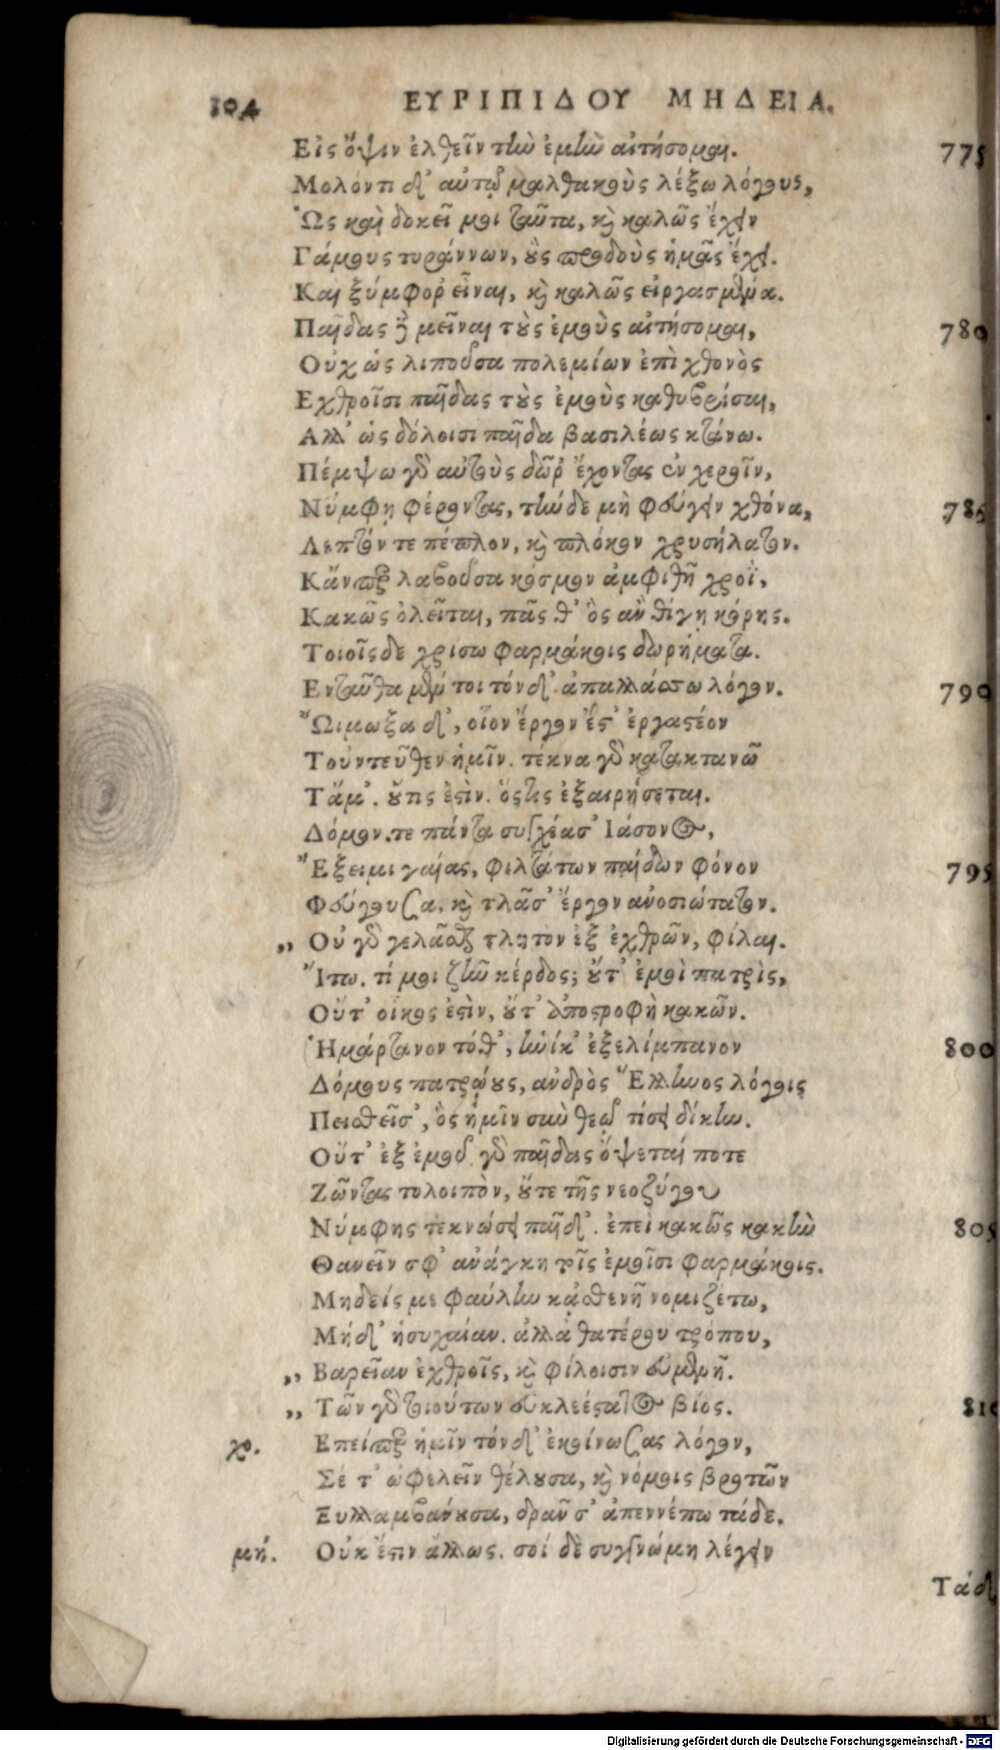 104 ΕΥΡΙΠΙΔΟΥ ΜΗΔΕΙΑ.
Εἰς ὄψιν ἐλθεῖν τὴν ἐμὴν αἰτήσομαι. 775
Μολόντι δ' αὐτῷ μαλθακοὺς λέξω λόγους,
Ὡς καὶ δοκεῖ μοι ταῦτα, καὶ καλῶς ἔχειν
Γάμους τυράννων, οὓς προδοὺς ἡμᾶς ἔχει.
Καὶ ξύμφορ' εἶναι, καὶ καλῶς εἰργασμένα.
Παῖδας δὲ μεῖναι τοὺς ἐμοὺς αἰτήσομαι, 780
Οὐχ ὡς λιποῦσα πολεμίων ἐπὶ χθονὸς
Εχθροῖσι παῖδας τοὺς ἐμοὺς καθυβρίσαι,
Αλλ' ὡς δόλοισι παῖδα βασιλέως κτάνω.
Πέμψω γὰρ αὐτοὺς δῶρ' ἔχοντας ἐν χεροῖν,
Νύμφῃ φέροντας, τήνδε μὴ φεύγειν χθόνα, 785
Λεπτόν τε πέπλον, καὶ πλόκον χρυσήλατον.
Κἄνπερ λαβοῦσα κόσμον ἀμφιθῇ χροῒ,
Κακῶς ὀλεῖται, πᾶς θ' ὃς ἂν θίγῃ κόρης.
Τοιοῖςδε χρίσω φαρμάκοις δωρήματα.
Ενταῦθα μέν τοι τόνδ' ἀπαλλάσσω λόγον. 790
Ὤιμωξα δ', οἷον ἔργον ἔστ' ἐργαστέον
Τοὐντεῦθεν ἡμῖν. τέκνα γὰρ κατακτανῶ
Τἄμ'. οὔτις ἐστὶν. ὅςτις ἐξαιρήσεται.
Δόμον.τε πάντα συγχέασ' Ιάσονος,
Ἔξειμι γαίας, φιλτάτων παίδων φόνον 795
Φεύγουσα, καὶ τλᾶσ' ἔργον ἀνοσιώτατον.
„ Οὐ γὰρ γελᾶσθαι τλητὸν ἐξ ἐχθρῶν, φίλαι.
Ἴτω. τί μοι ζῆν κέρδος; οὔτ' ἐμοὶ πατρὶς,
Οὔτ' οἶκος ἐστὶν, οὔτ' ἀποστροφὴ κακῶν.
Ἡμάρτανον τόθ', ἡνίκ' ἐξελίμπανον 800
Δόμους πατρῴους, ἀνδρὸς Ἕλληνος λόγοις
Πεισθεῖσ', ὃς ἡμῖν σὺν θεῷ τίσει δίκην.
Οὔτ' ἐξ ἐμοῦ γὰρ παῖδας ὄψεταί ποτε
Ζῶντας τολοιπὸν, οὔτε τῆς νεοζύγου
Νύμφης τεκνώσει παῖδ'. ἐπεὶ κακῶς κακὴν 805
Θανεῖν σφ' ἀνάγκη τοῖς ἐμοῖσι φαρμάκοις.
Μηδείς με φαύλην κᾀσθενῆ νομιζέτω,
Μήδ' ἡσυχαίαν. ἀλλὰ θατέρου τρόπου,
„ Βαρεῖαν ἐχθροῖς, καὶ φίλοισιν εὐμενῆ.
„ Τῶν γὰρ τοιούτων εὐκλεέστατος βίος. 810
χο. Επείπερ ἡμῖν τόνδ' ἐκοίνωσας λόγον,
Σέ τ' ὠφελεῖν θέλουσα, καὶ νόμοις βροτῶν
Ξυλλαμβάνουσα, δρᾶν σ' ἀπεννέπω τάδε.
μή. Οὐκ ἔστιν ἄλλως. σοί δὲ συγγνώμη λέγειν
Τάδ'
Digitalisierung gefördert durch die Deutsche Forschungsgemeinschaft - DFG